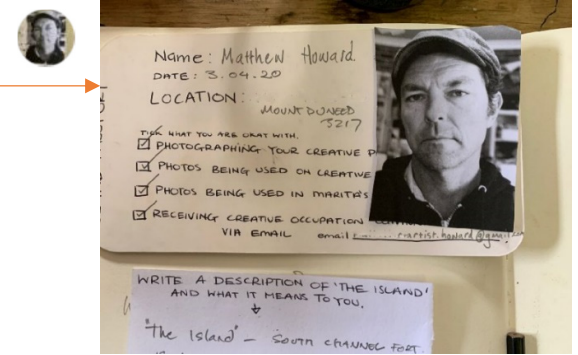 Name: Matthew Howard.
DATE: 3.04.20
LOCATION:
MOUNT DUNEED
3217
TICK WHAT YOU ARE OKAY WITH.
PHOTOGRAPHING YOUR CREATIVE P
PHOTOS BEING USED ON CREATIVE
PHOTOS BEING USED IN MARITA'S
RECEIVING CREATIVE OCCUPATION
VIA EMAIL email
WRITE A DESCRIPTION OF 'THE ISLAND'
AND WHAT IT MEANS TO YOU.
"The Island" – SOUTH CHANNEL FORT.